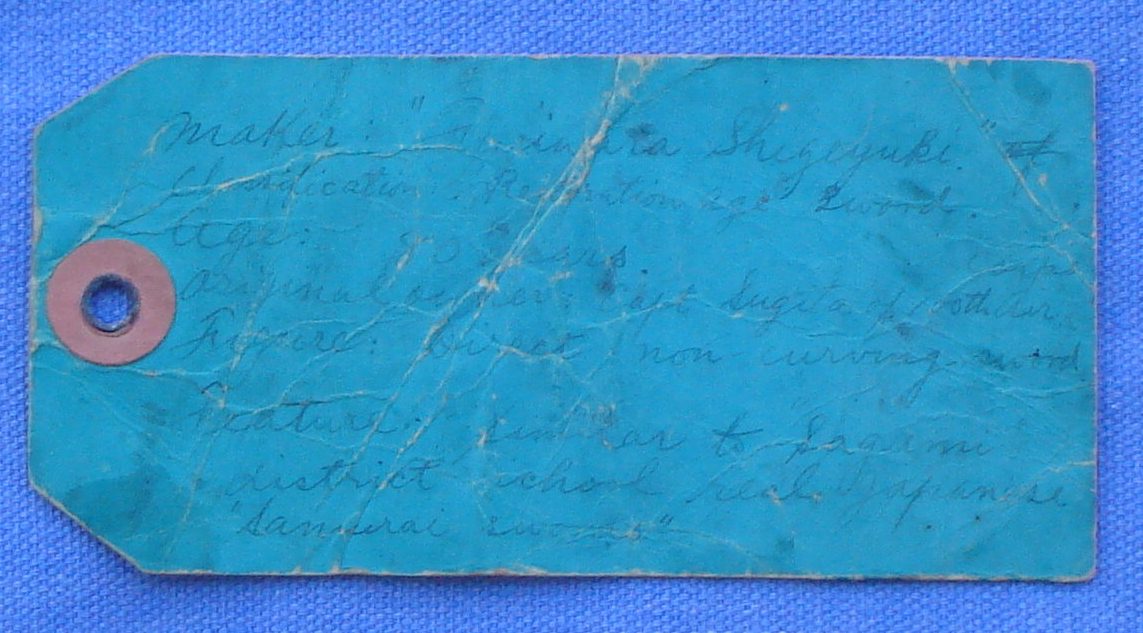 Maker: " Shigeyuki"
Classification: Restoration age sword.
Age: 80 years
Corps
Original owner: Capt Sugita of
Figure: Direct, non curving sword
Feature: Similar to Sagami
district school real Japanese
"Samurai sword"